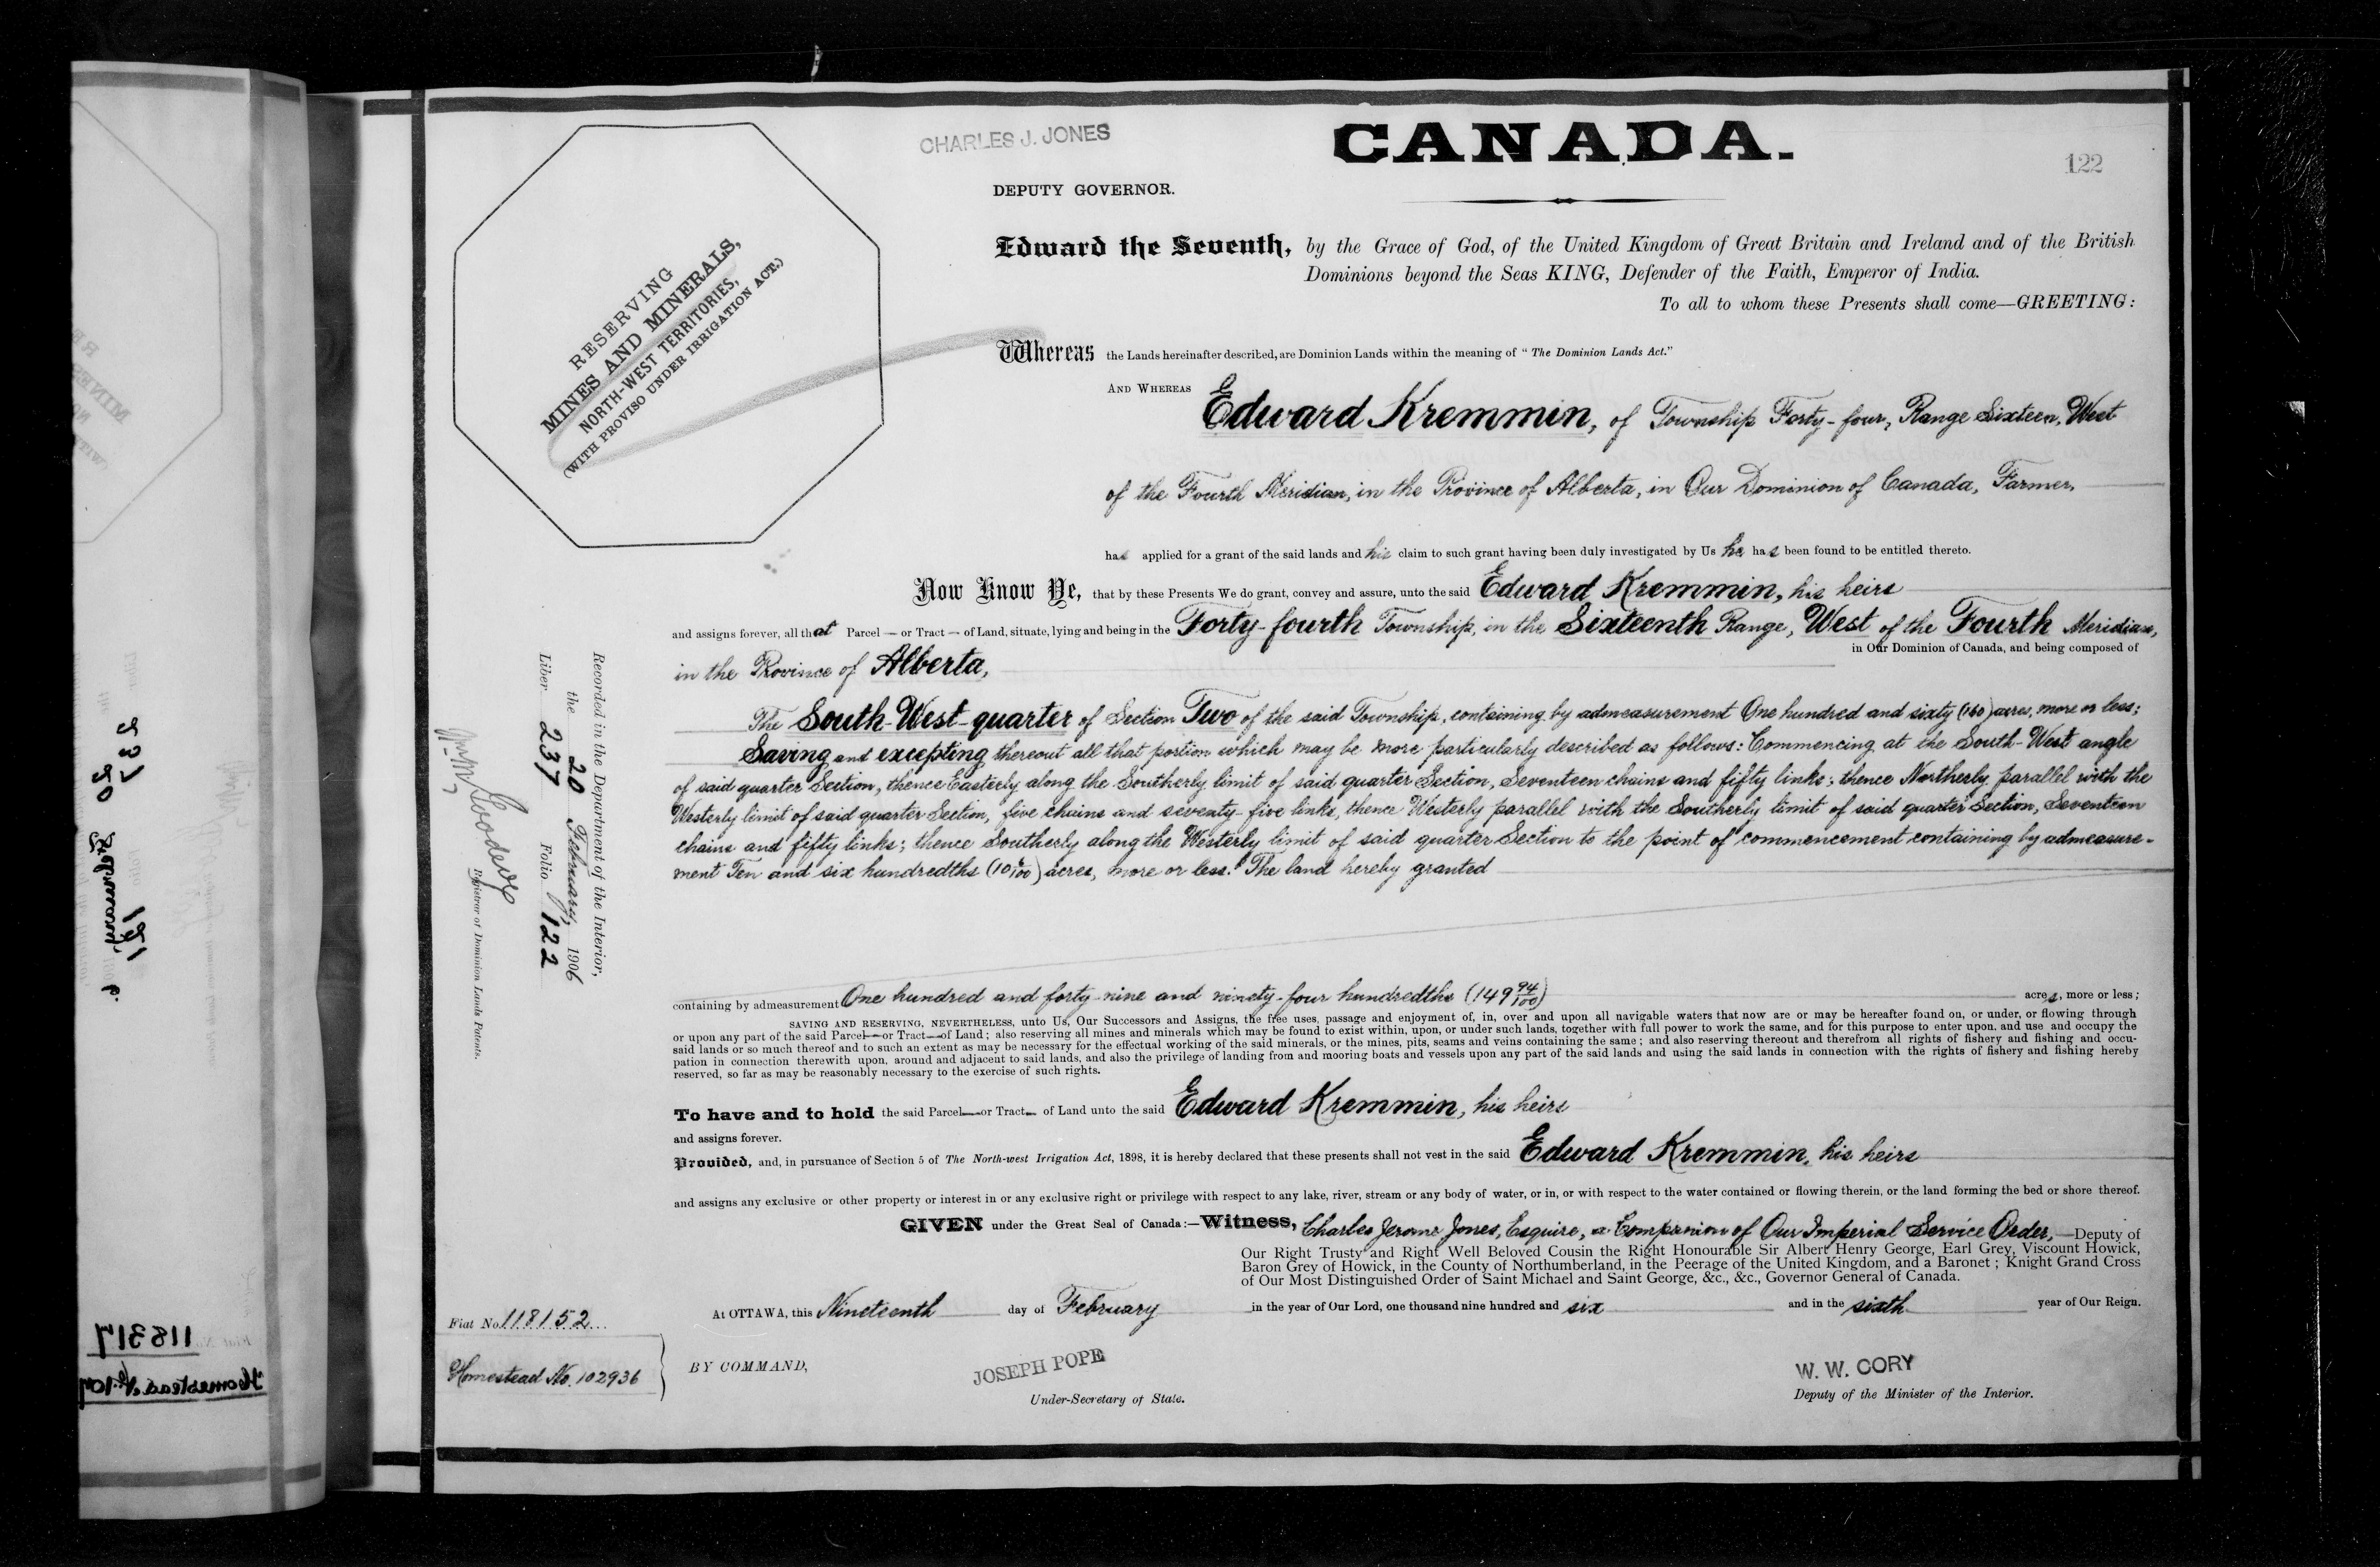 CHARLES J. JONES
CANADA.
122
DEPUTY GOVERNOR.
RESERVING
MINES AND MINERALS,
NORTH-WEST TERRITORIES,
(WITH PROVISO UNDER IRRIGATION ACT.)
Edward the Seventh, by the Grace of God, of the United Kingdom of Great Britain and Ireland and of the British
Dominions beyond the Seas KING, Defender of the Faith, Emperor of India.
To all to whom these Presents shall come—GREETING:
Whereas the Lands hereinafter described, are Dominion Lands within the meaning of "The Dominion Lands Act."
AND WHEREAS Edward Kremmin, of Township Forty-four, Range Sixteen, West
of the Fourth Meridian, in the Province of Alberta, in Our Dominion of Canada, Farmer,
has applied for a grant of the said lands and his claim to such grant having been duly investigated by Us he has been found to be entitled thereto.
Now Know Ye, that by these Presents We do grant, convey and assure, unto the said Edward Kremmin, his heirs
and assigns forever, all that Parcel — or Tract — of Land, situate, lying and being in the Forty-fourth Township, in the Sixteenth Range, West of the Fourth Meridian,
in the Province of Alberta, in Our Dominion of Canada, and being composed of
The South-West-quarter of Section Two of the said Township, containing by admeasurement One hundred and sixty (160) acres, more or less;
Saving and excepting thereout all that portion which may be more particularly described as follows: Commencing at the South-West angle
of said quarter Section, thence Easterly along the Southerly limit of said quarter Section, Seventeen chains and fifty links; thence Northerly parallel with the
Westerly limit of said quarter Section, five chains and seventy-five links, thence Westerly parallel with the Southerly limit of said quarter Section, Seventeen
chains and fifty links; thence Southerly along the Westerly limit of said quarter Section to the point of commencement containing by admeasure-
ment Ten and six hundredths (10 6/100) acres, more or less. The land hereby granted
containing by admeasurement One hundred and forty-nine and ninety-four hundredths (149 94/100) acres, more or less;
SAVING AND RESERVING, NEVERTHELESS, unto Us, Our Successors and Assigns, the free uses, passage and enjoyment of, in, over and upon all navigable waters that now are or may be hereafter found on, or under, or flowing through
or upon any part of the said Parcel—or Tract—of Land; also reserving all mines and minerals which may be found to exist within, upon, or under such lands, together with full power to work the same, and for this purpose to enter upon, and use and occupy the
said lands or so much thereof and to such an extent as may be necessary for the effectual working of the said minerals, or the mines, pits, seams and veins containing the same; and also reserving thereout and therefrom all rights of fishery and fishing and occu-
pation in connection therewith upon, around and adjacent to said lands, and also the privilege of landing from and mooring boats and vessels upon any part of the said lands and using the said lands in connection with the rights of fishery and fishing hereby
reserved, so far as may be reasonably necessary to the exercise of such rights.
To have and to hold the said Parcel—or Tract— of Land unto the said Edward Kremmin, his heirs
and assigns forever.
Provided, and, in pursuance of Section 5 of The North-west Irrigation Act, 1898, it is hereby declared that these presents shall not vest in the said Edward Kremmin, his heirs
and assigns any exclusive or other property or interest in or any exclusive right or privilege with respect to any lake, river, stream or any body of water, or in, or with respect to the water contained or flowing therein, or the land forming the bed or shore thereof.
GIVEN under the Great Seal of Canada:—Witness, Charles Jerome Jones, Esquire, a Companion of Our Imperial Service Order,—Deputy of
Our Right Trusty and Right Well Beloved Cousin the Right Honourable Sir Albert Henry George, Earl Grey, Viscount Howick,
Baron Grey of Howick, in the County of Northumberland, in the Peerage of the United Kingdom, and a Baronet; Knight Grand Cross
of Our Most Distinguished Order of Saint Michael and Saint George, &c., &c., Governor General of Canada.
At OTTAWA, this Nineteenth day of February in the year of Our Lord, one thousand nine hundred and six and in the sixth year of Our Reign.
BY COMMAND,
JOSEPH POPE
Under-Secretary of State.
W. W. CORY
Deputy of the Minister of the Interior.
Fiat No. 118152
Homestead No. 102936
Recorded in the Department of the Interior,
the 20 February, 1906
Liber 237 Folio 122
Registrar of Dominion Lands Patents.
118317
Homestead No. 107